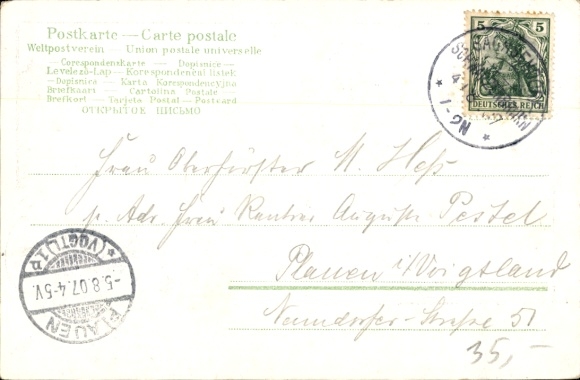 Postkarte — Carte postale
Weltpostverein — Union postale universelle
Corespondenskarte — Dopisnice —
Levelezö-Lap — Korespondenční lístek
— Dopisnica — Karta Korespondencyjna
Briefkaart — Cartolina Postale
Brefkort — Tarjeta Postal — Postcard
ОТКРЫТОЕ ПИСЬМО
5 5
DEUTSCHES REICH
4
1-2N
Frau Oberförster M. Heß
p. Adr. Frau Rentier Auguste Pestel
Plauen i/Voigtland
Neundorfer-Straße 51
35,-
PLAUEN
(VOGTL.) 1 p
-5.8.07.4-5V.